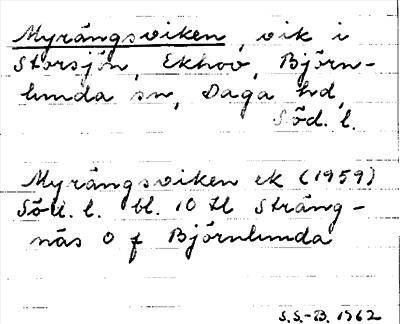 Myrängsviken, vik i
Storsjön, Ekhov, Björn-
lunda sn, Daga hd,
Söd. l.
Myrängsviken ek (1959)
Söd. l. bl. 10 tl Sträng-
näs O f Björnlunda
S.S.-B. 1962